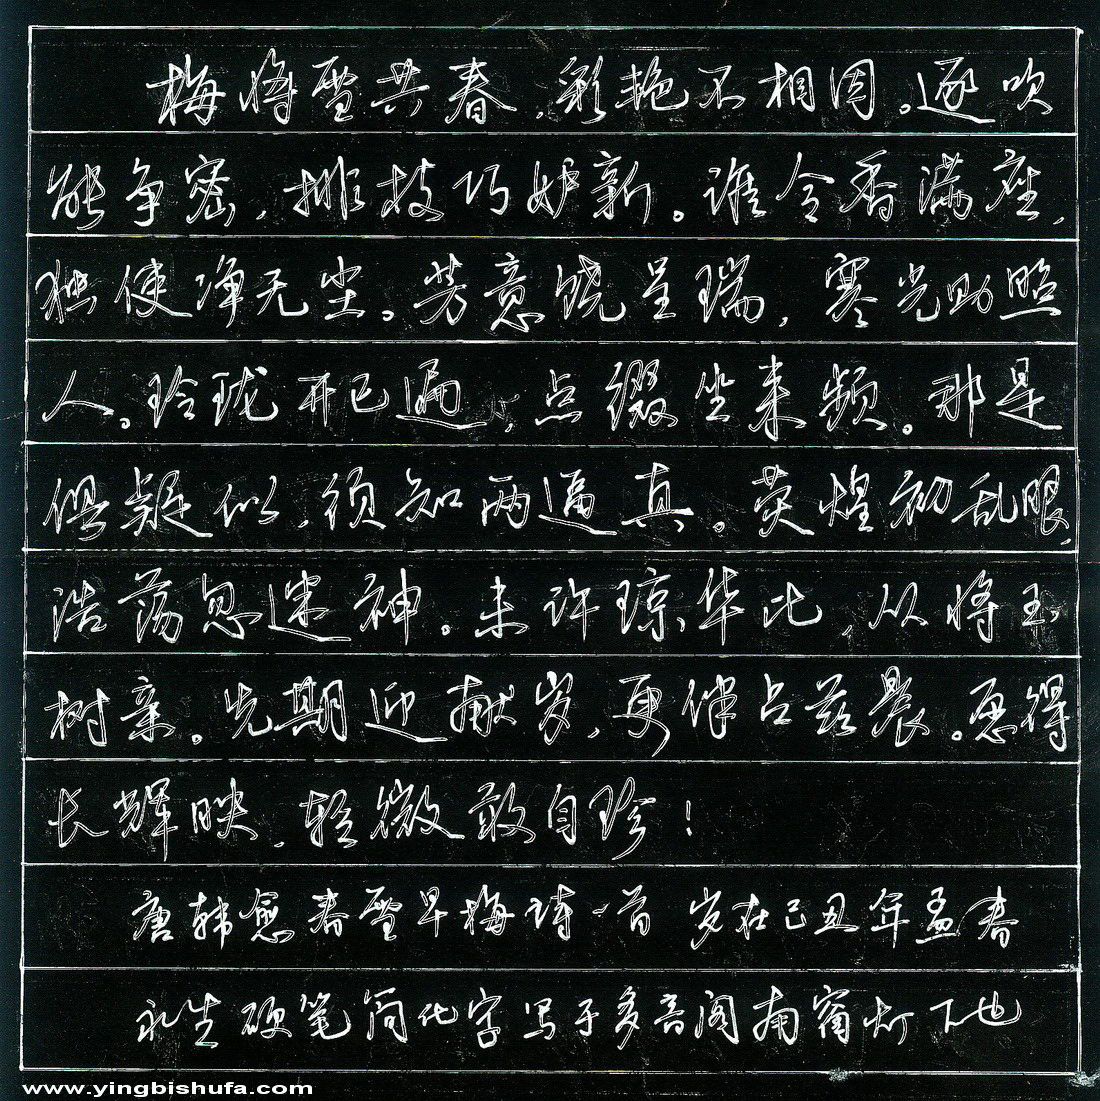 梅将雪共春，彩艳不相因。逐吹
能争密，排枝巧妒新。谁令香满座，
独使净无尘。芳意饶呈瑞，寒光助照
人。玲珑开已遍，点缀坐来频。那是
俱疑似，须知两逼真。荧煌初乱眼，
浩荡忽迷神。未许琼华比，从将玉
树亲。先期迎献岁，更伴占兹晨。愿得
长辉映，轻微敢自珍！
唐韩愈春雪早梅诗一首 岁在己丑年孟春
永生硬笔简化字写于多音阁南窗灯下也
www.yingbishufa.com